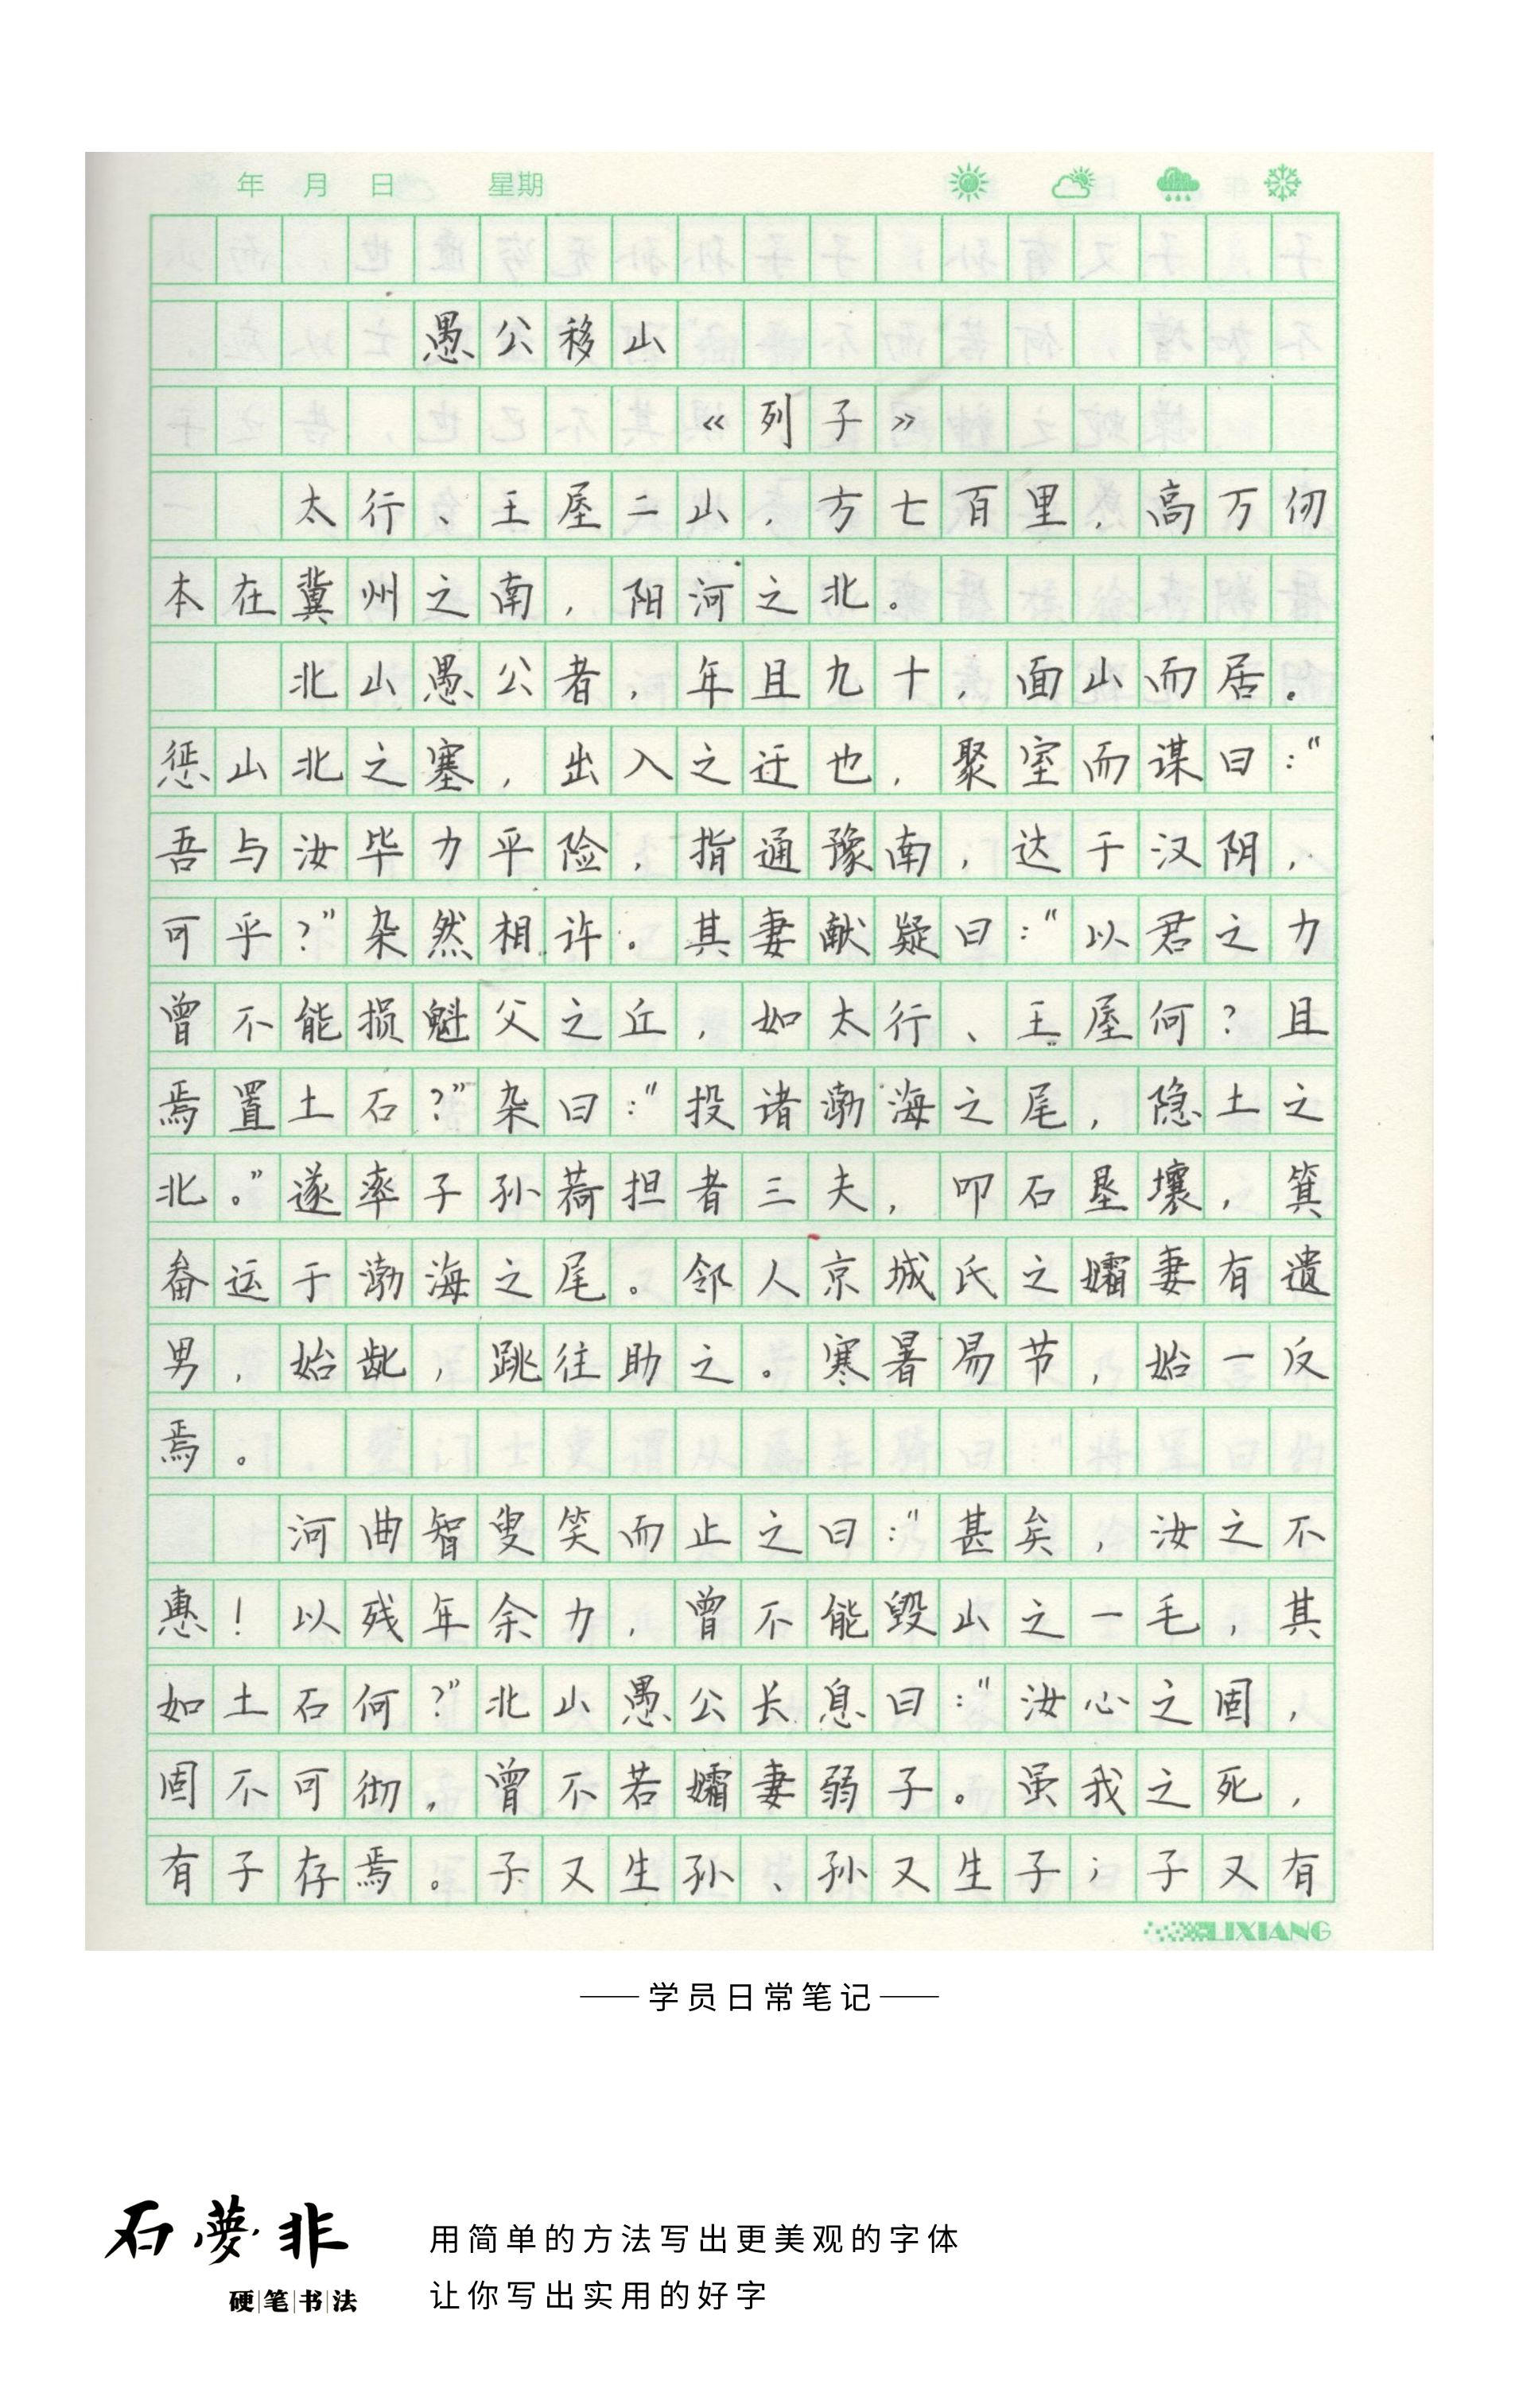 年 月 日 星期
愚公移山
《列子》
太行、王屋二山，方七百里，高万仞
本在冀州之南，阳河之北。
北山愚公者，年且九十，面山而居。
惩山北之塞，出入之迂也，聚室而谋曰：“
吾与汝毕力平险，指通豫南，达于汉阴，
可乎？”杂然相许。其妻献疑曰：“以君之力
曾不能损魁父之丘，如太行、王屋何？且
焉置土石？”杂曰：“投诸渤海之尾，隐土之
北。”遂率子孙荷担者三夫，叩石垦壤，箕
畚运于渤海之尾。邻人京城氏之孀妻有遗
男，始龀，跳往助之。寒暑易节，始一反
焉。
河曲智叟笑而止之曰：“甚矣，汝之不
惠！以残年余力，曾不能毁山之一毛，其
如土石何？”北山愚公长息曰：“汝心之固，
固不可彻，曾不若孀妻弱子。虽我之死，
有子存焉。子又生孙、孙又生子；子又有
LIXIANG
——学员日常笔记——
石夢非
硬笔书法
用简单的方法写出更美观的字体
让你写出实用的好字